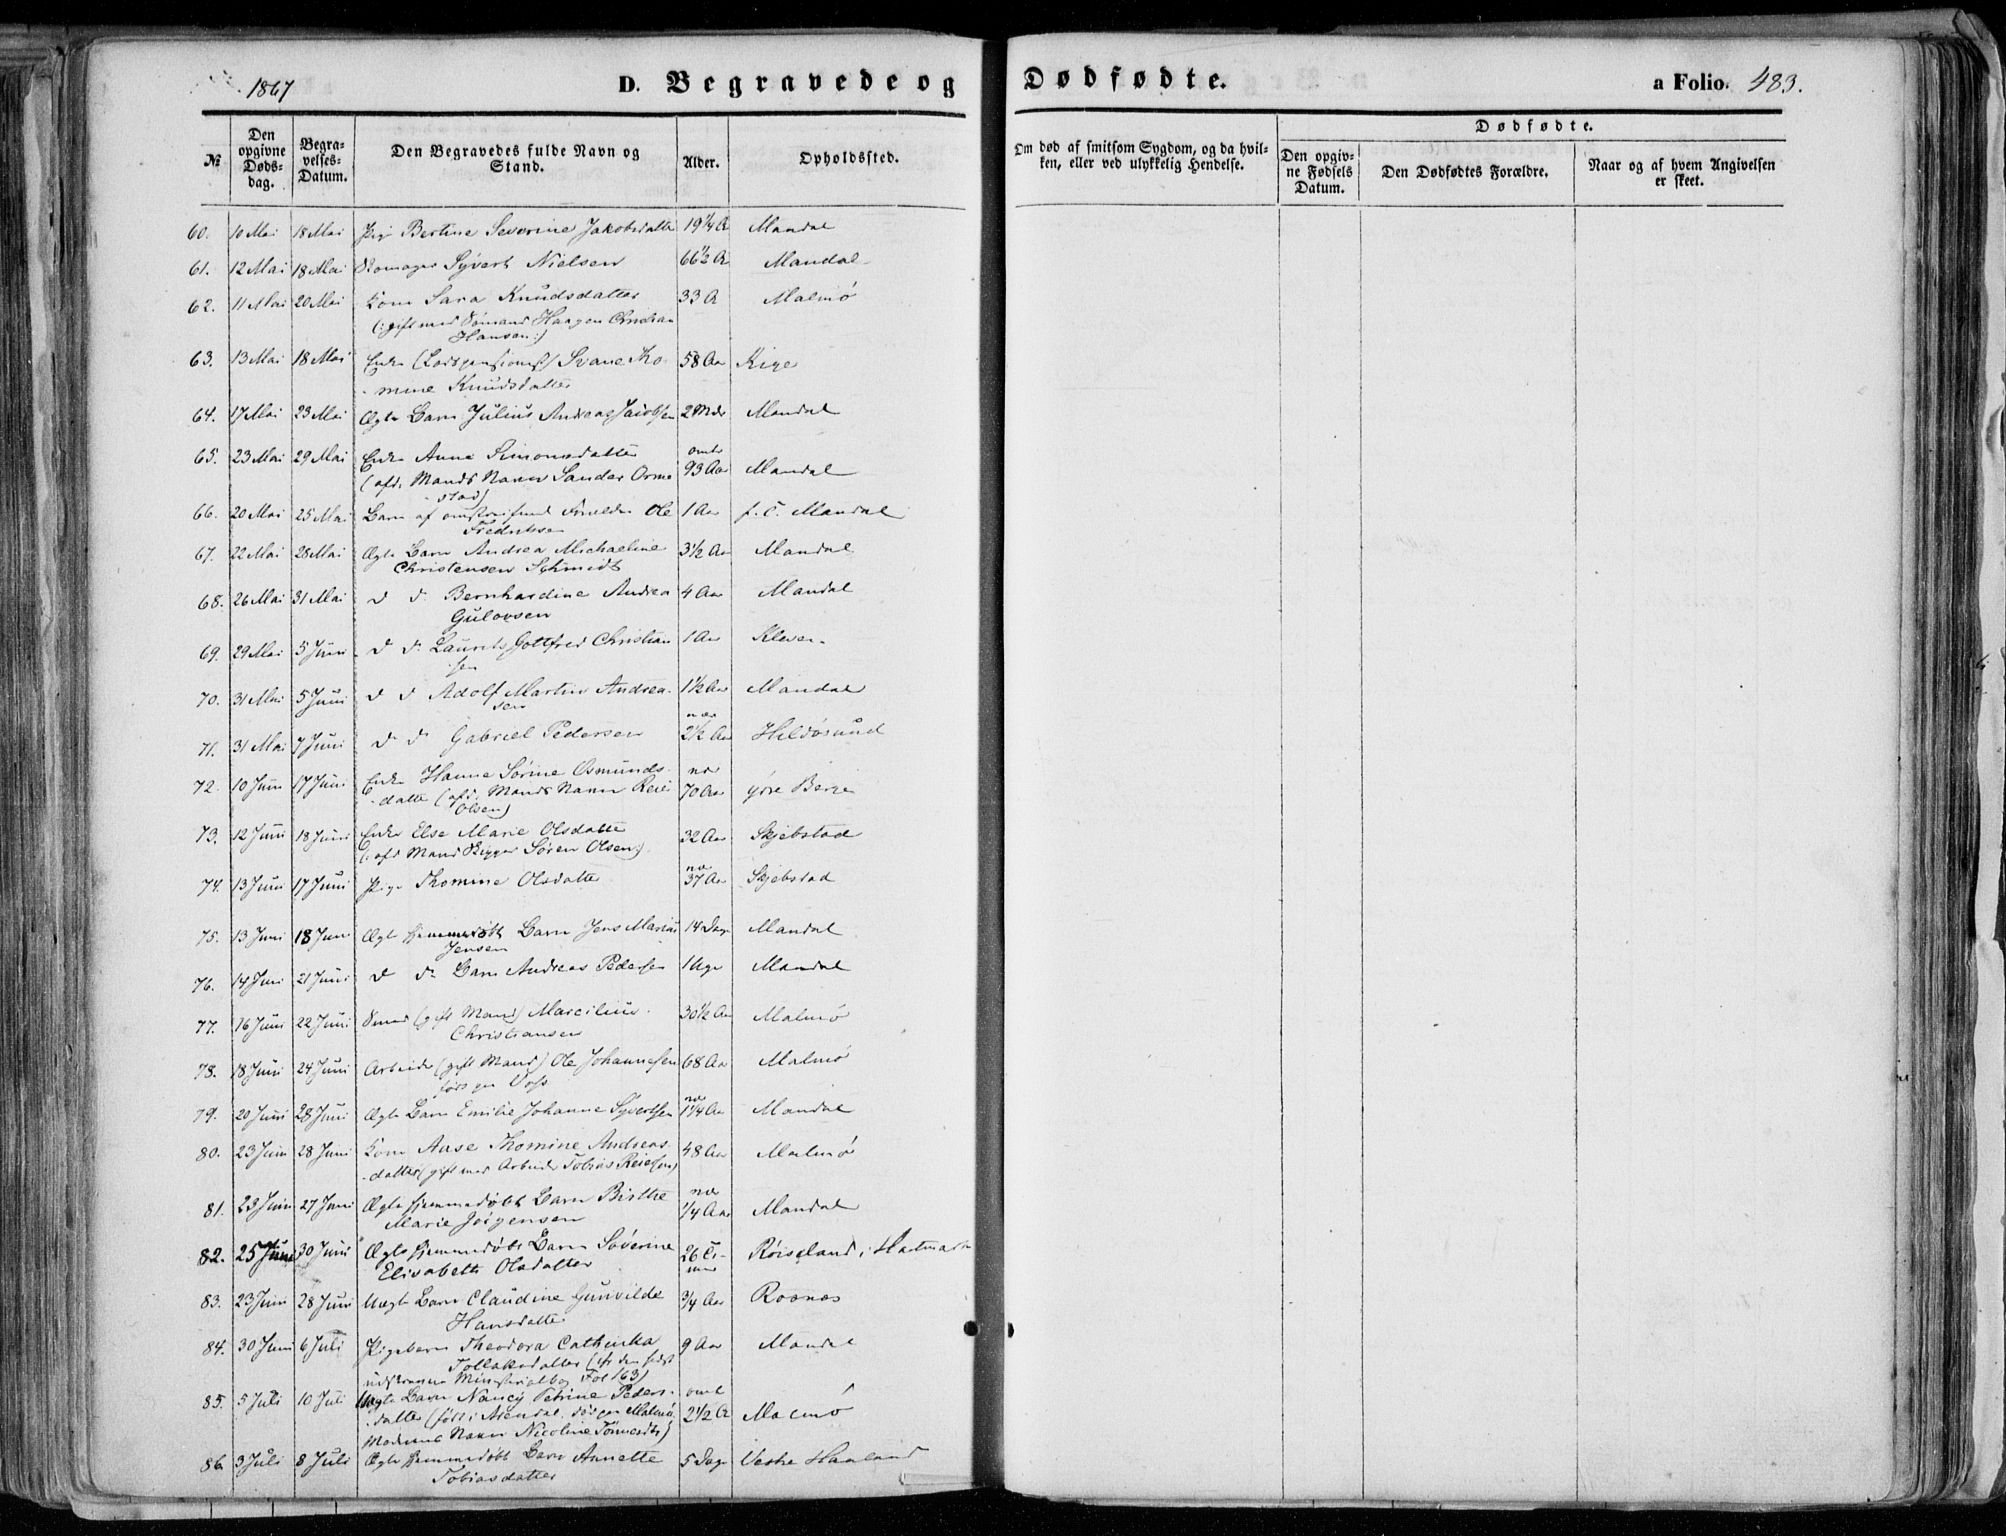 1867
D. Begravede og Dødfødte.
a Folio. 483.
№
Den opgivne Døds-dag.
Begra-velses-Datum.
Den Begravedes fulde Navn og Stand.
Alder.
Opholdssted.
Om død af smitsom Sygdom, og da hvil-ken, eller ved ulykkelig Hendelse.
Dødfødte.
Den opgiv-ne Fødsels Datum.
Den Dødfødtes Forældre.
Naar og af hvem Angivelsen er skeet.
60. 10 Mai 18 Mai Pige Bertine Severine Jakobsdatte 19 1/4 A Mandal
61. 12 Mai 18 Mai Skomager Syvert Nielsen 66 1/2 A Mandal
62. 11 Mai 20 Mai Kone Sara Knudsdatter 33 A Malmø
(: gift med Sømand Haagen Christian
Hansen :)
63. 13 Mai 18 Mai Enke Svane Tho- 58 Aar Kige
mine Knudsdatter
64. 17 Mai 23 Mai Ægte Barn Julius Andreas Jacobsen 2 Mdr Mandal
65. 23 Mai 29 Mai Enke Anne Simonsdatter omtr
(afd. Mands Navn Sander Orme 93 Aar Mandal
stad)
66. 20 Mai 25 Mai Barn af omstreifend Forældre Ole 1 Aar f. T. Mandal
Fredriksen
67. 22 Mai 28 Mai Ægte Barn Andrea Michaeline 3 1/2 Aar Mandal
Christensen Schmidt
68. 26 Mai 31 Mai d d. Bernhardine Andrea 4 Aar Mandal
Gulovsen
69. 29 Mai 5 Juni d d. Laurits Gottfred Christian 1 Aar Kleven
sen
70. 31 Mai 5 Juni d d Adolf Martin Andrea- 1 1/2 Aar Mandal
sen
71. 31 Mai 7 Juni d d. Gabriel Pedersen nær 2 1/2 Aar Hildøsund
72. 10 Juni 17 Juni Enke Hanne Sørine Osmunds- nær
datte (afd. Mands Navn Reie 70 Aar Berge
Olsen)
73. 12 Juni 18 Juni Enke Else Marie Olsdatte 32 Aar Skjebstad
(: afd Mand Rigger Søren Olsen :)
74. 13 Juni 17 Juni Pige Thomine Olsdatte nær 37 Aar Skjebstad
75. 13 Juni 18 Juni Ægte hjemmedøbt Barn Jens Marius 14 Dage Mandal
Jensen
76. 14 Juni 21 Juni d d. Barn Andreas Pedersen 1 Uge Mandal
77. 16 Juni 22 Juni Smed (gift Mand) Marcilius 30 1/2 Aar Malmø
Christiansen
78. 18 Juni 24 Juni Arbeider (gift Mand) Ole Johannesen 68 Aar Malmø
født paa Voss
79. 20 Juni 28 Juni Ægte Barn Emilie Johanne Syvertsen nær 1 1/4 Aar Mandal
80. 23 Juni 28 Juni Kone Aase Thomine Andreas- 48 Aar Malmø
datter (gift med Arbeider Tobias Reiersen)
81. 23 Juni 27 Juni Ægte hjemmedøbt Barn Birthe nær 1/4 Aar Mandal
Marie Jørgensen
82. 25 Juni 30 Juni Ægte hjemmedøbt Barn Søverine 26 Ti- Røiseland i Halmark
Elisabeth Olsdatter mer
83. 23 Juni 28 Juni Uægte Barn Claudine Gunvilde 3/4 Aar Rosnes
Hansdatter
84. 30 Juni 6 Juli Pigebarn Theodora Cathinka 9 Aar Mandal
Tollaksdatter (efr den sidst
udskrevne Ministerialbog Fol 163)
85. 5 Juli 10 Juli Uægte Barn Nancy Petrine Peders- omt
datter (født i Arendal, død paa Malmø 2 1/2 A Malmø
Moderens Navn Nicoline Tønnesdtr)
86. 3 Juli 8 Juli Ægte hjemmedøbt Barn Annette 5 Dage Vestre Haaland
Tobiasdatter